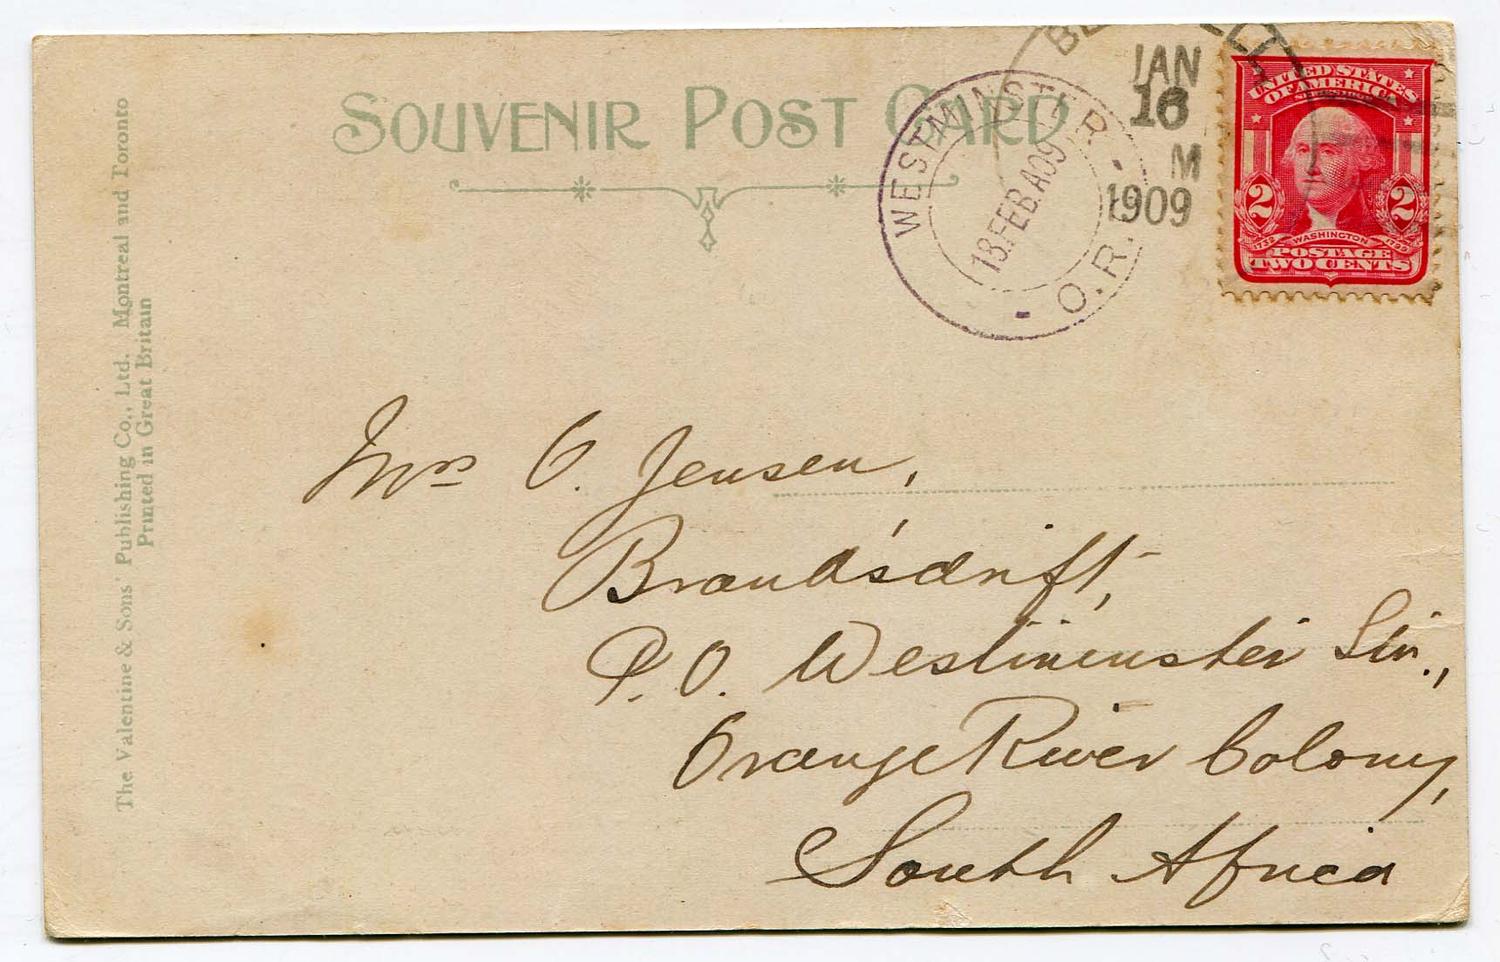 SOUVENIR POST CARD
WESTMINSTER - O.R.
18.FEB.A09
JAN
16
M
1909
UNITED STATES
OF AMERICA
2
2
1732 WASHINGTON 1799
POSTAGE
TWO CENTS
The Valentine & Sons' Publishing Co., Ltd. Montreal and Toronto
Printed in Great Britain
Mrs O. Jensen,
Brandsdrift,
P.O. Westminster Stn.,
Orange River Colony,
South Africa